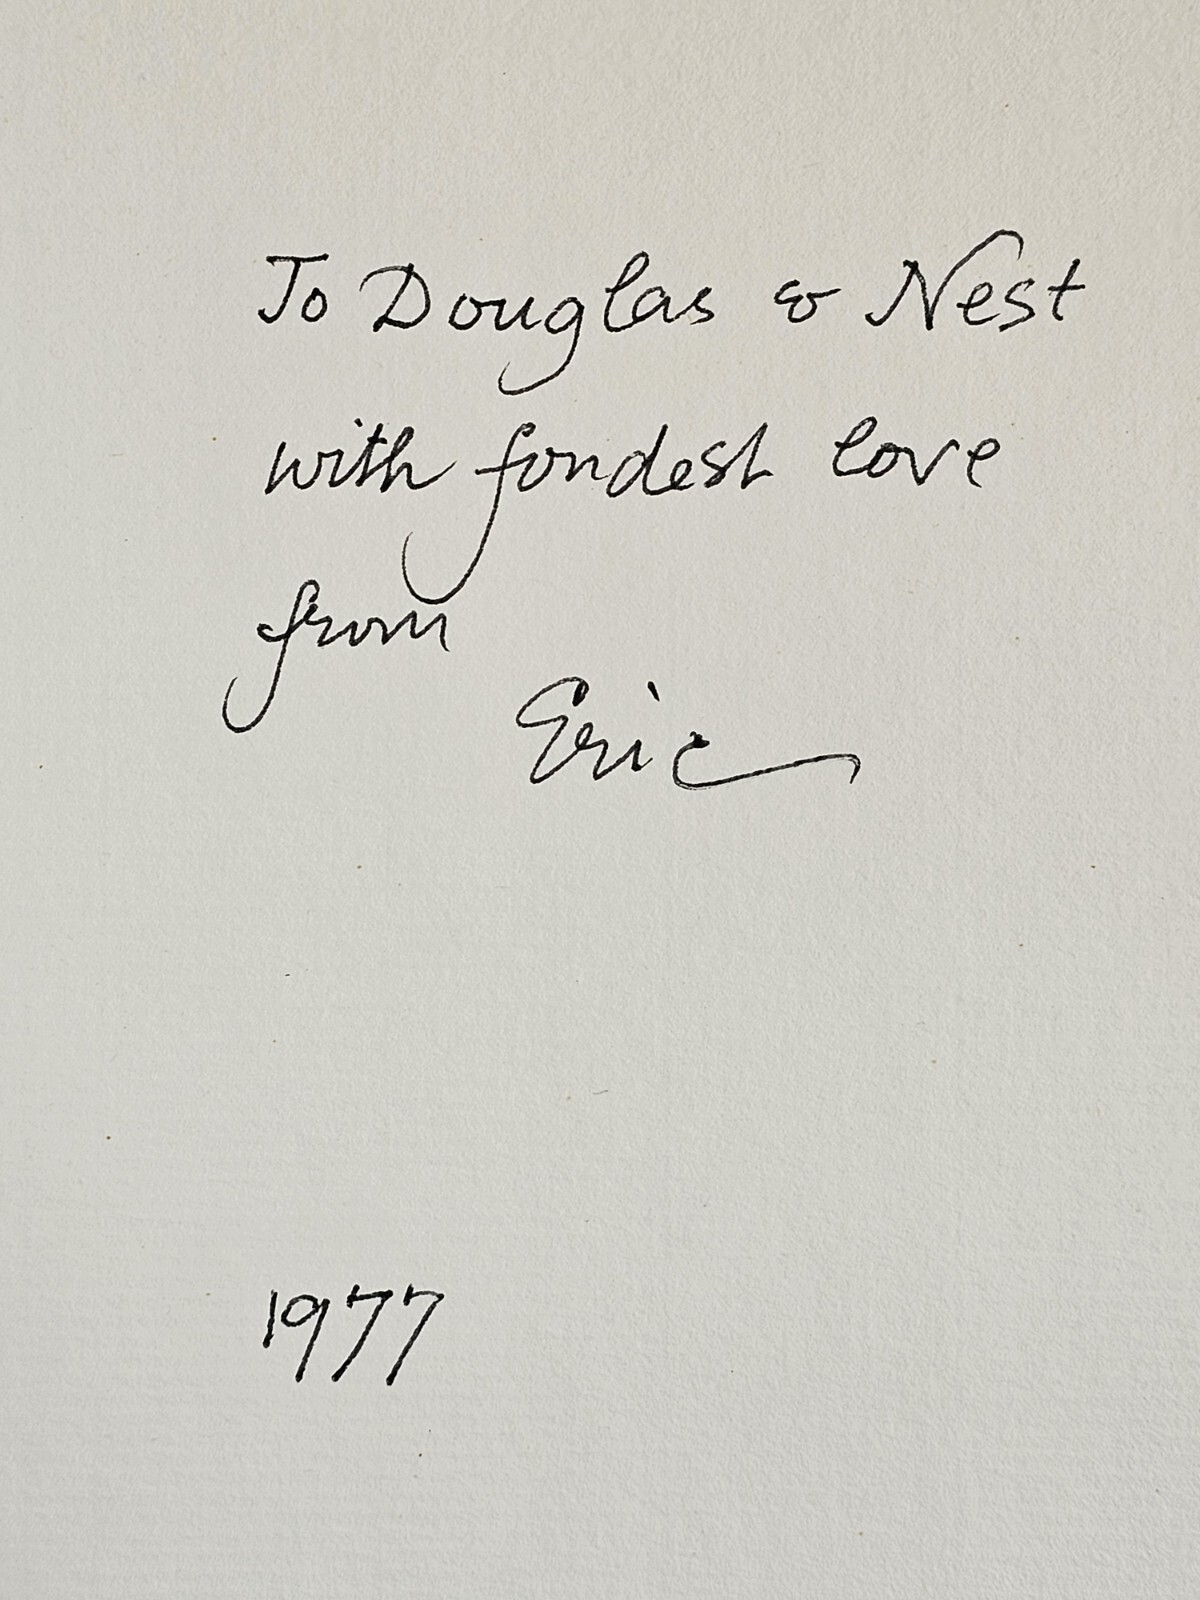 To Douglas & Nest
with fondest love
from
Eric
1977